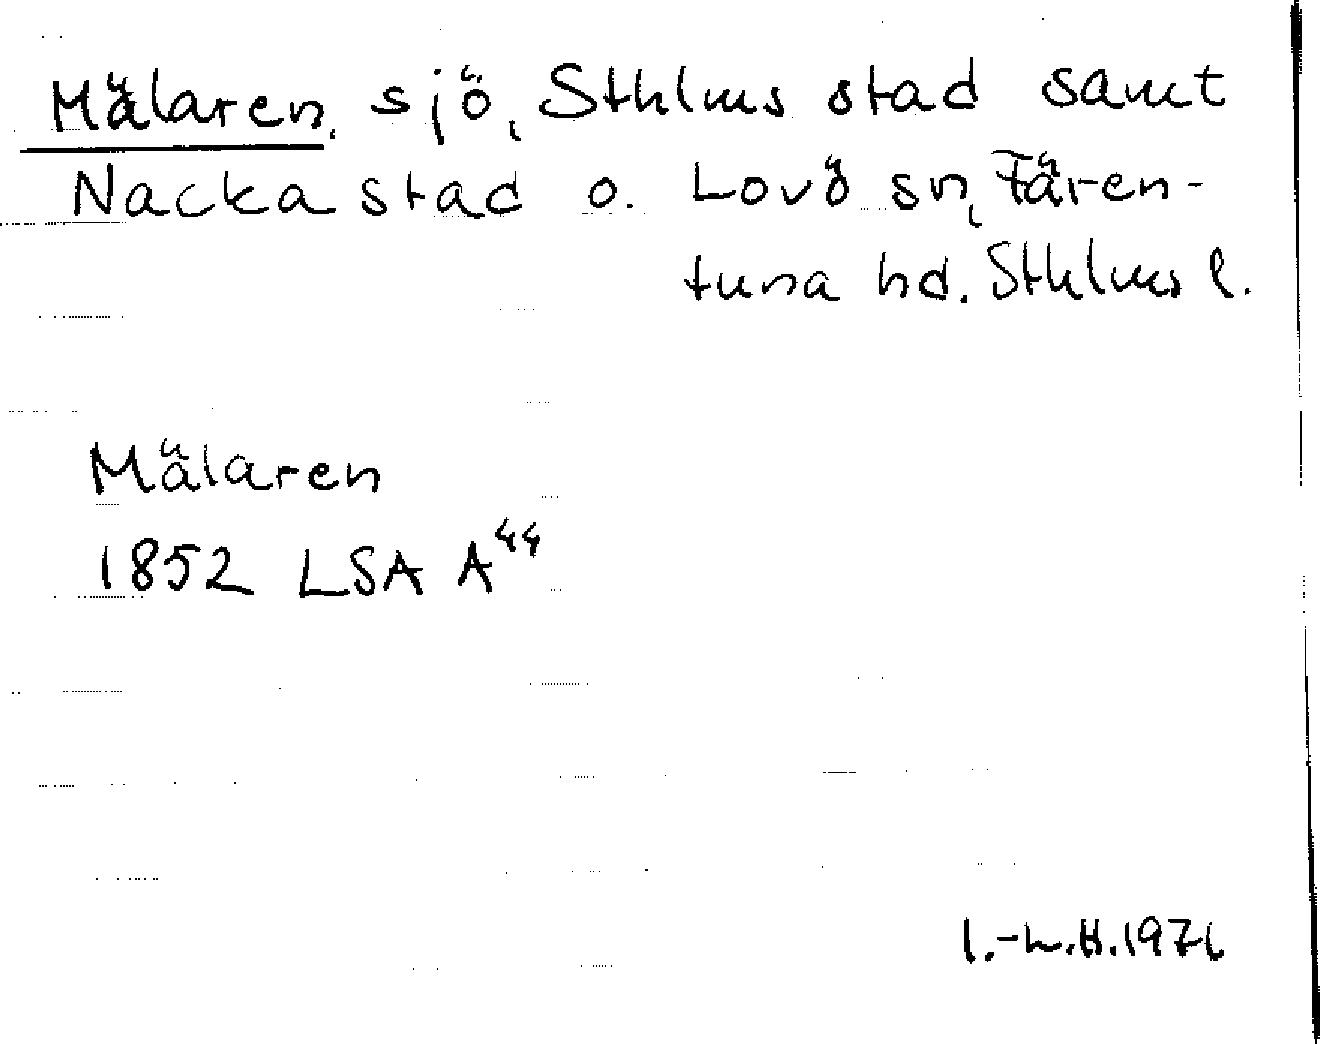 Mälaren, sjö, Sthlms stad samt
Nacka stad o. Lovö sn, Fären-
tuna hd. Sthlms l.
Mälaren
1852 LSA A44
I.-L.H.1971